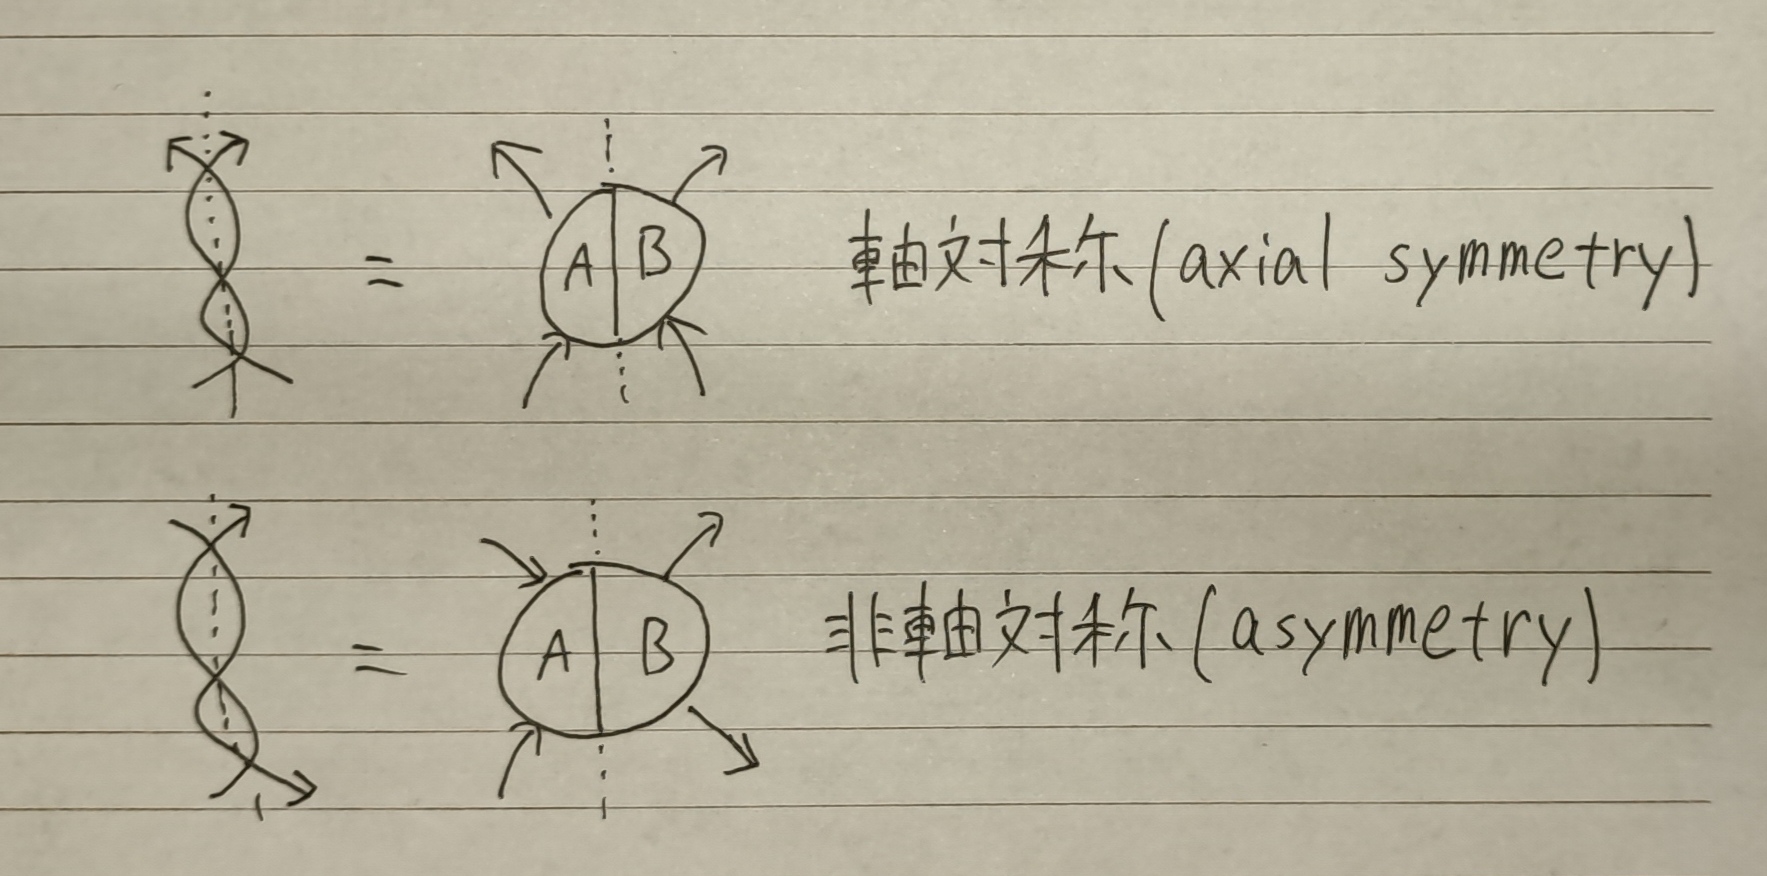 = A B 軸対称(axial symmetry)
= A B 非軸対称(asymmetry)